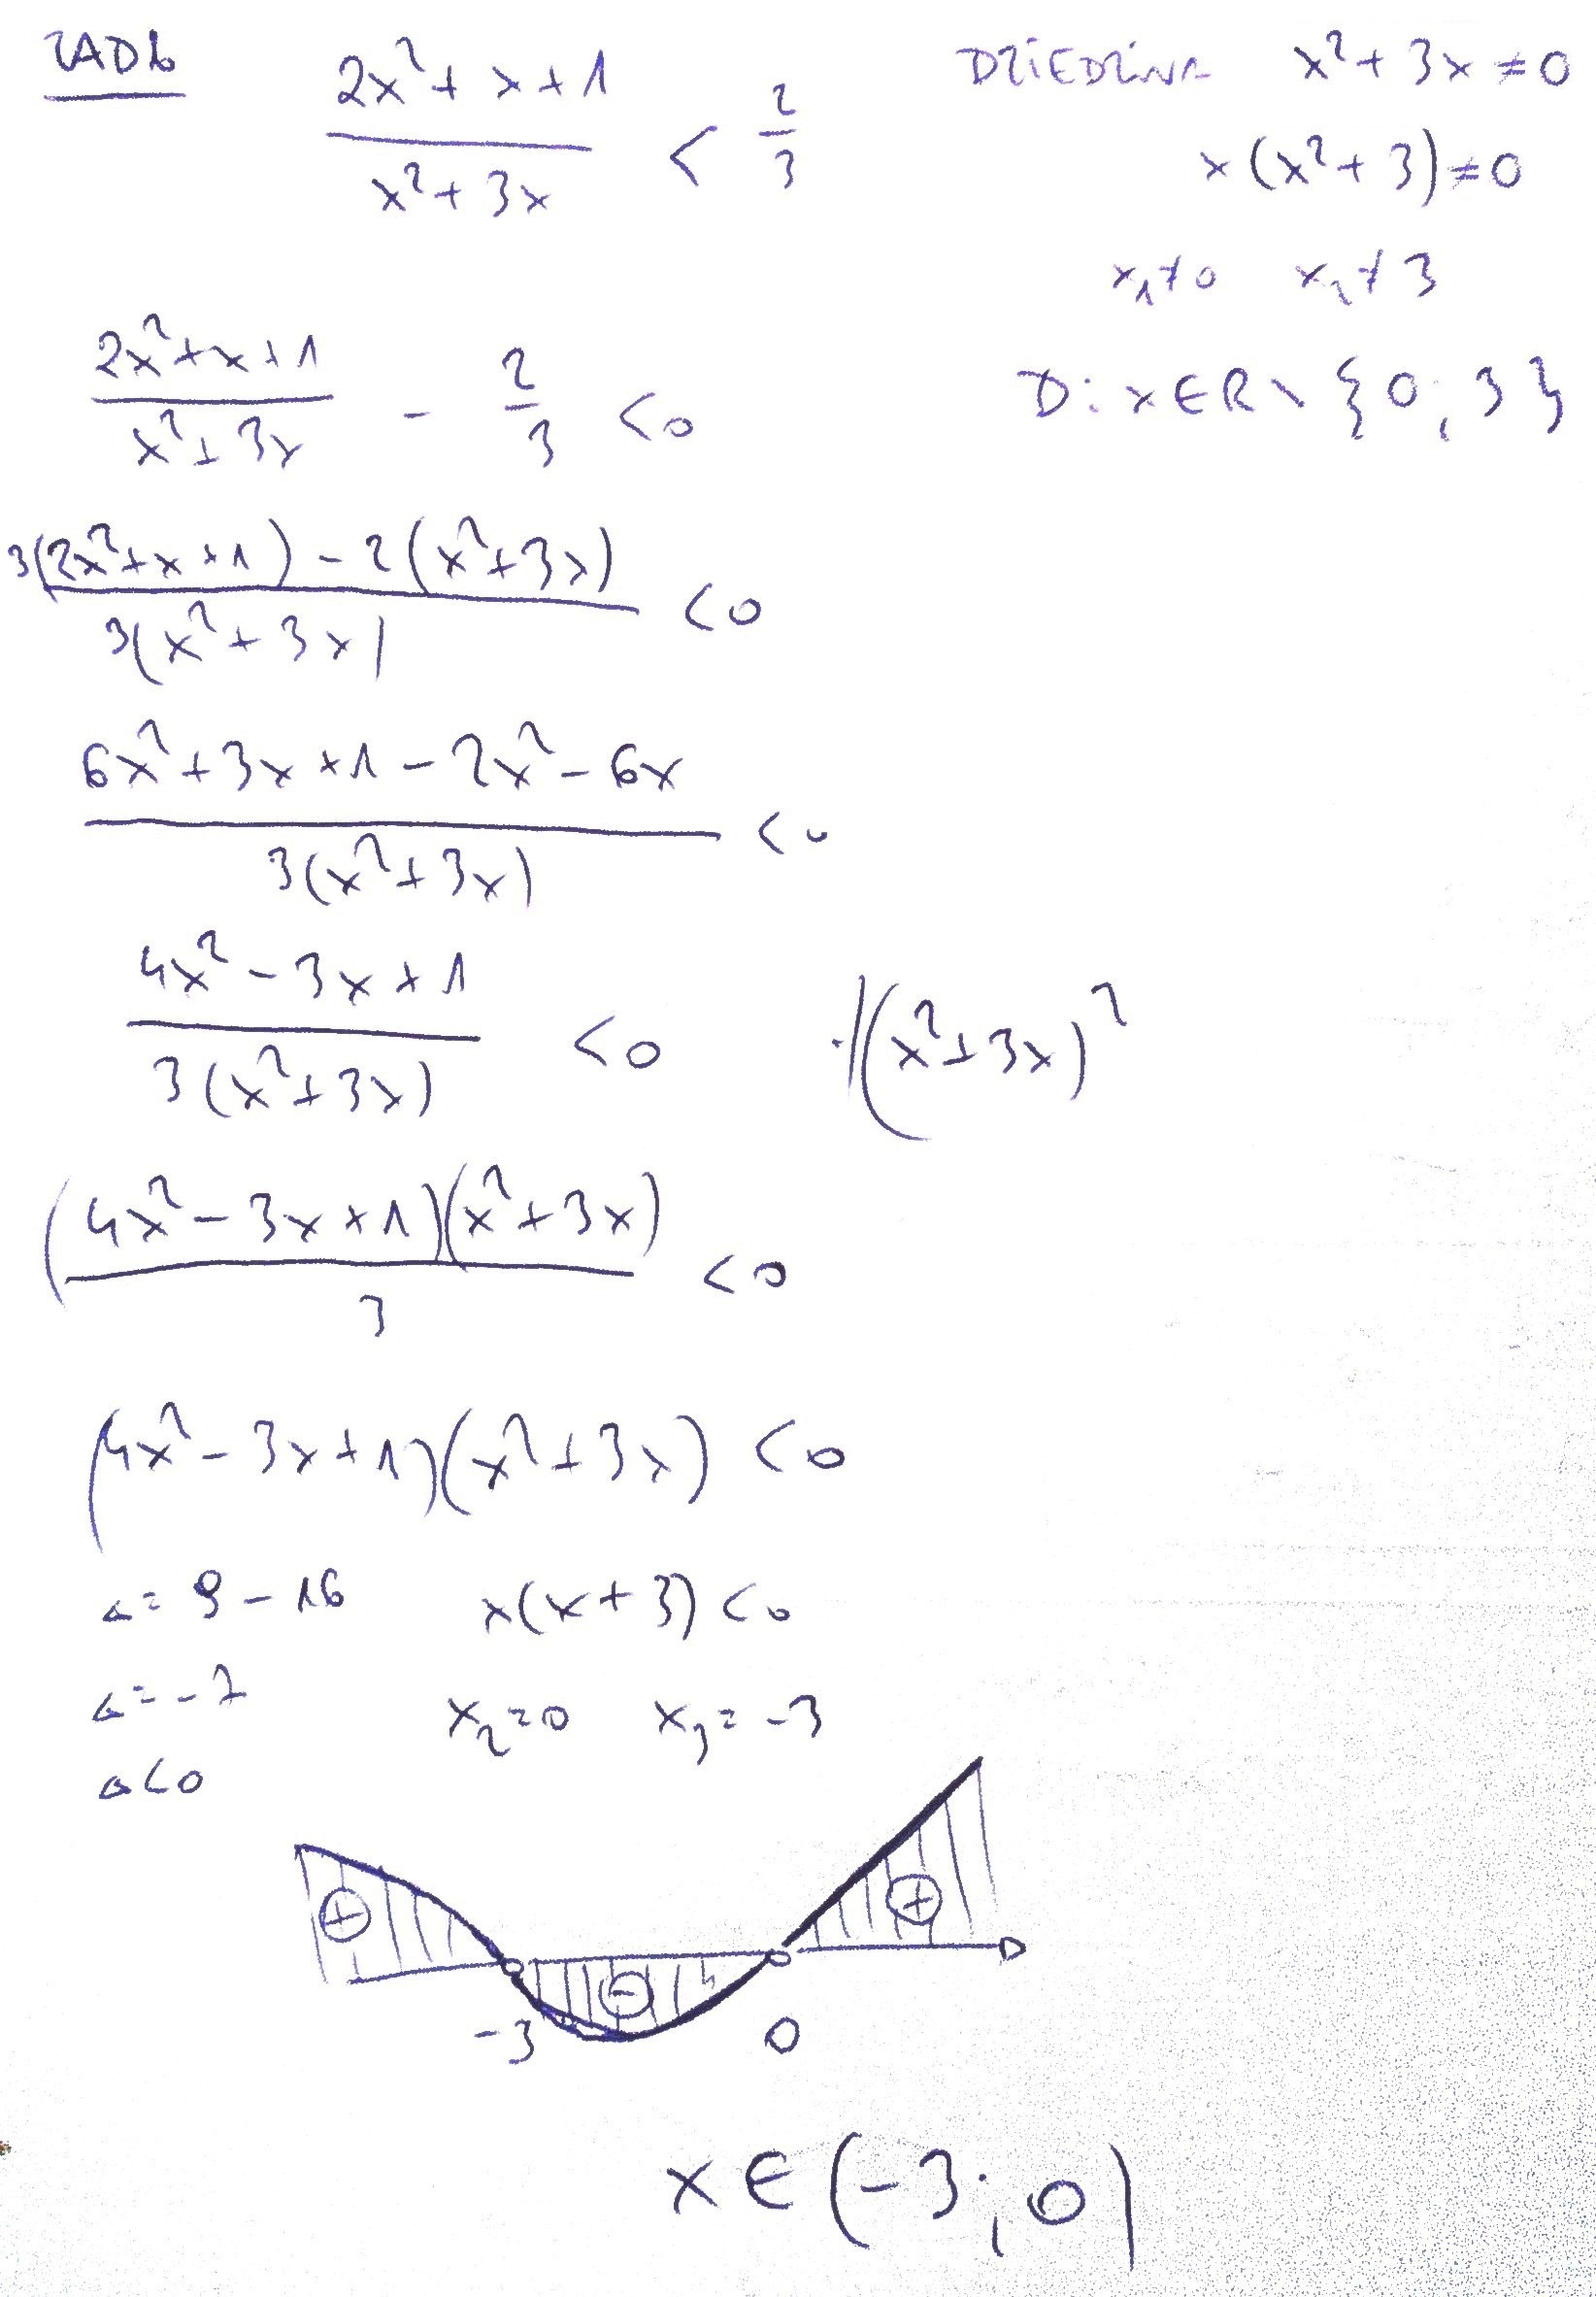 ZAD6
(2x²+x+1)/(x²+3x) < 2/3
DZIEDZINA x²+3x≠0
x(x²+3)≠0
x₁≠0 x₂≠3
D: x∈R\{0;3}
(2x²+x+1)/(x²+3x) - 2/3 <0
(3(2x²+x+1)-2(x²+3x))/(3(x²+3x)) <0
(6x²+3x+1-2x²-6x)/(3(x²+3x)) <0
(4x²-3x+1)/(3(x²+3x)) <0 ·/(x²+3x)²
((4x²-3x+1)(x²+3x))/3 <0
(4x²-3x+1)(x²+3x)<0
Δ=9-16 x(x+3)<0
Δ=-7 x₂=0 x₃=-3
Δ<0
+ - +
-3 0
x∈(-3;0)